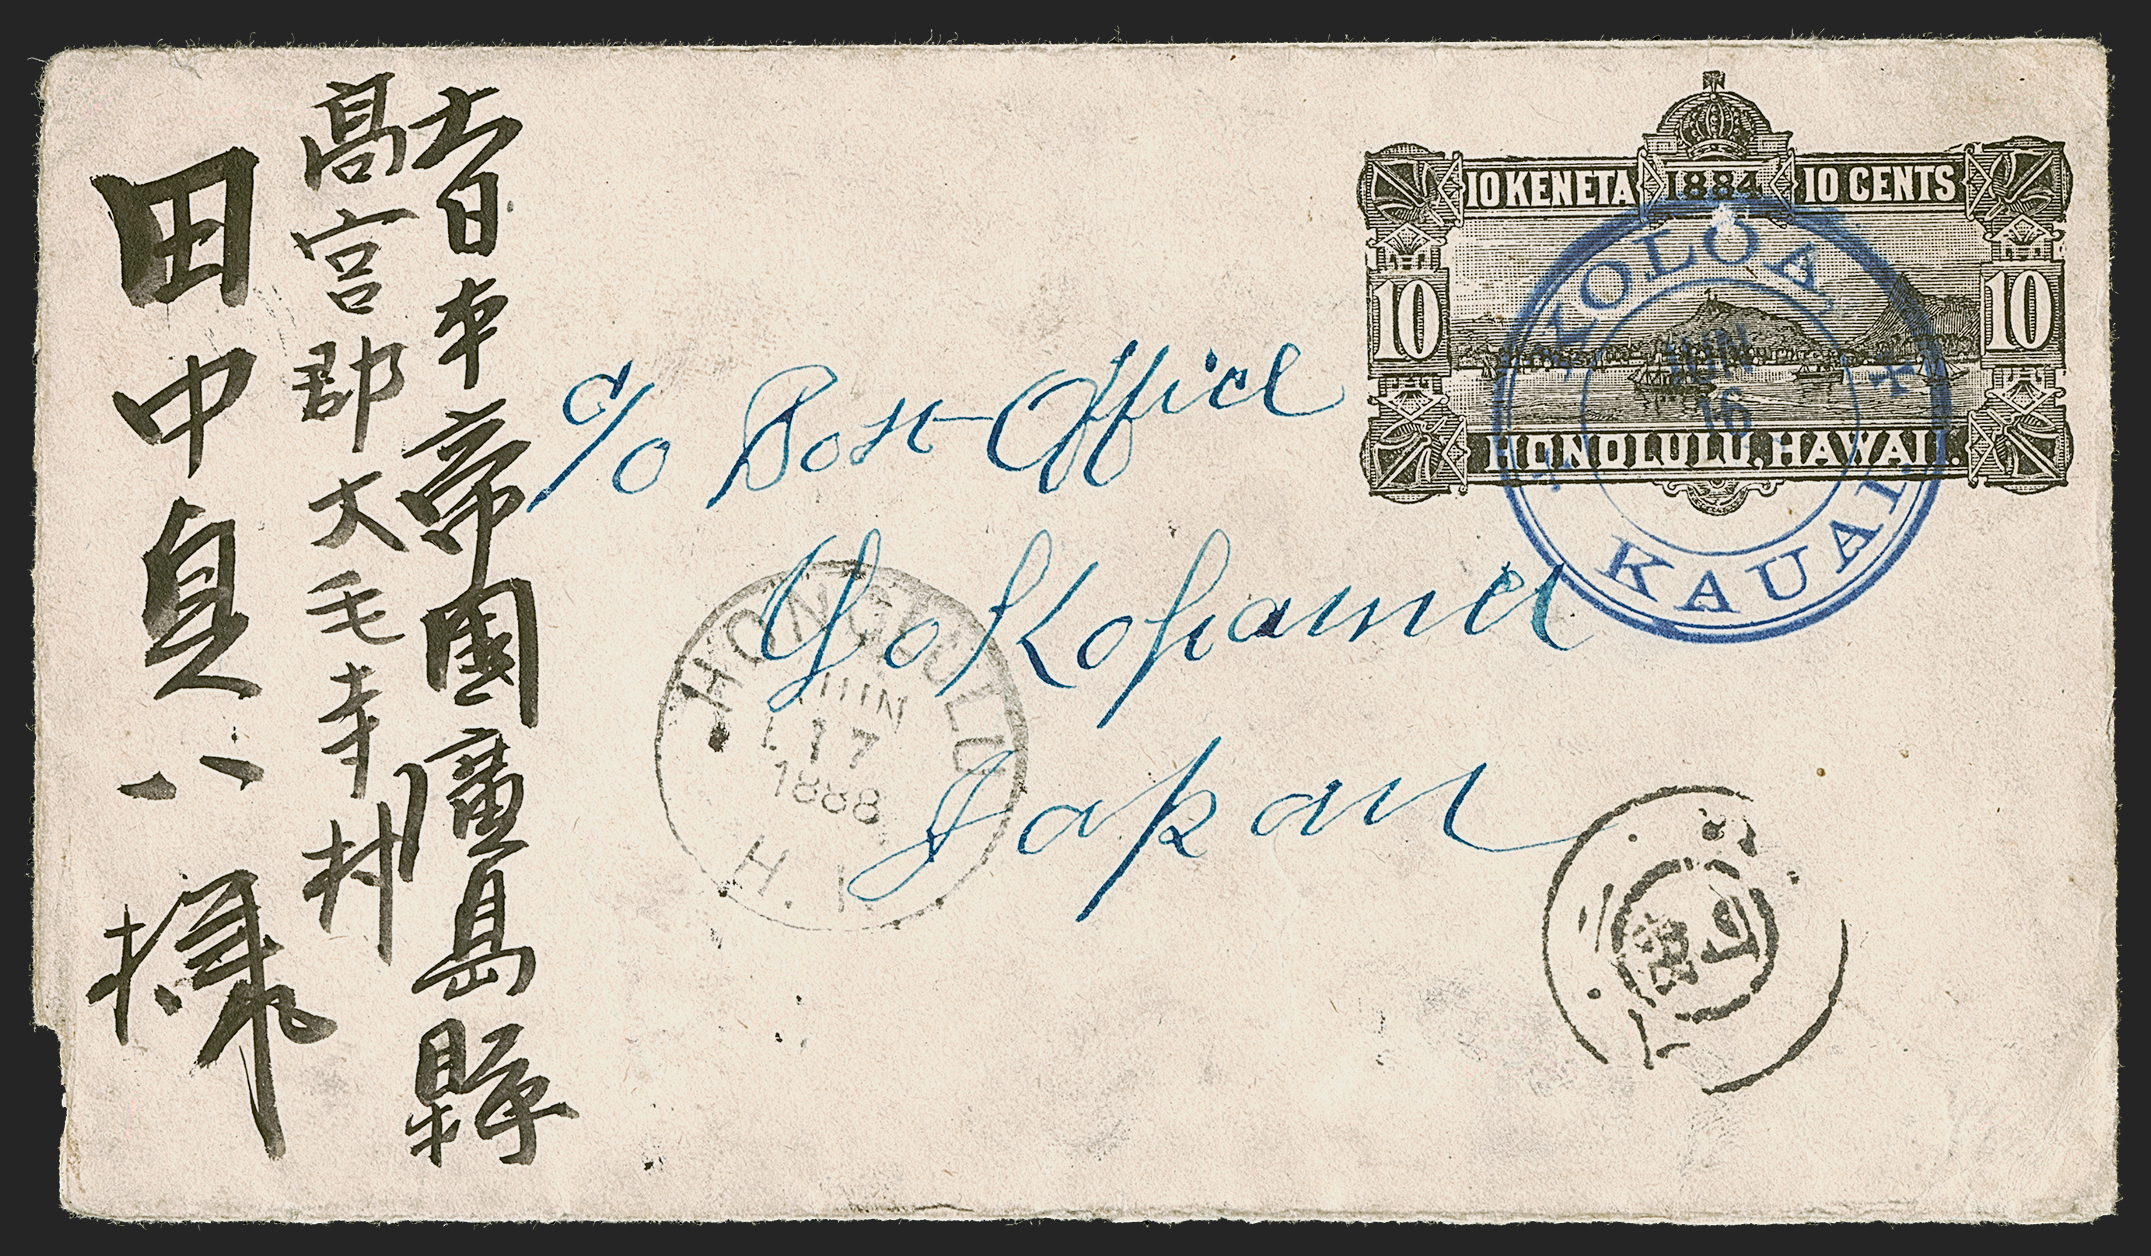 大日本帝國廣島縣
高宮郡大毛寺村
田中 八様
c/o Post Office
Yokohama
Japan
10 KENETA 1884 10 CENTS
10 10
HONOLULU, HAWAII.
KOLOA
JUN
16
KAUAI
HONOLULU
JUN
17
1888
H. I.